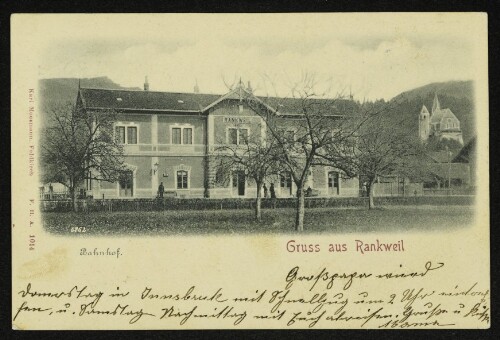 RANKWEIL
Karl Moosmann, Feldkirch
F. H. a. 1014
6862
Bahnhof.
Gruss aus Rankweil
Großpapa wird
Donnerstag in Innsbruck mit Schnellzug um 2 Uhr eintref
fen, u. Samstag Nachmittag mit Euch abreisen, Grüße u Küße
Mama